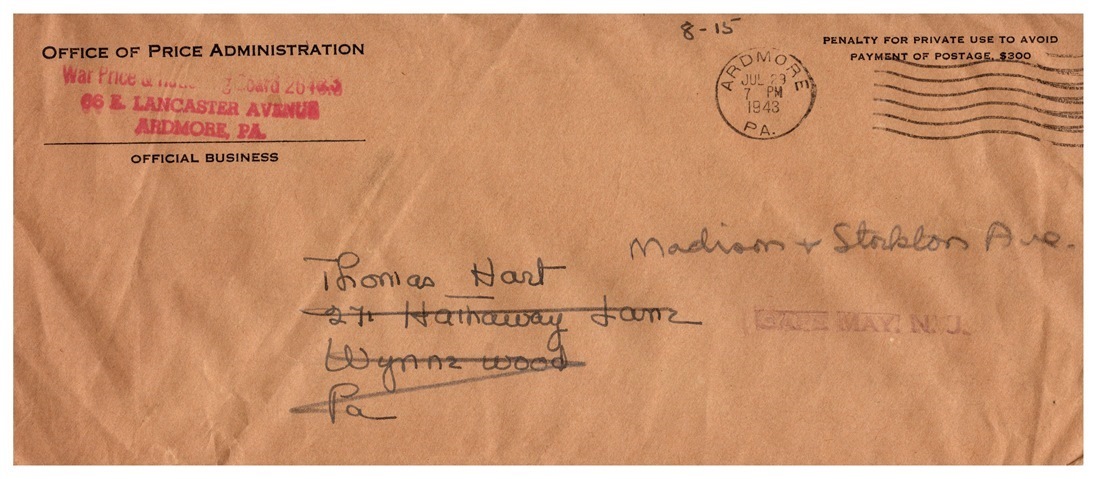 8-15
OFFICE OF PRICE ADMINISTRATION
War Price & Board
66 E. LANCASTER AVENUE
ARDMORE, PA.
OFFICIAL BUSINESS
PENALTY FOR PRIVATE USE TO AVOID
PAYMENT OF POSTAGE, $300
ARDMORE
JUL 29
7 PM
1943
PA.
Madison + Stockton Ave.
CAPE MAY, N. J.
Thomas Hart
271 Hathaway Lane
Wynnewood
Pa